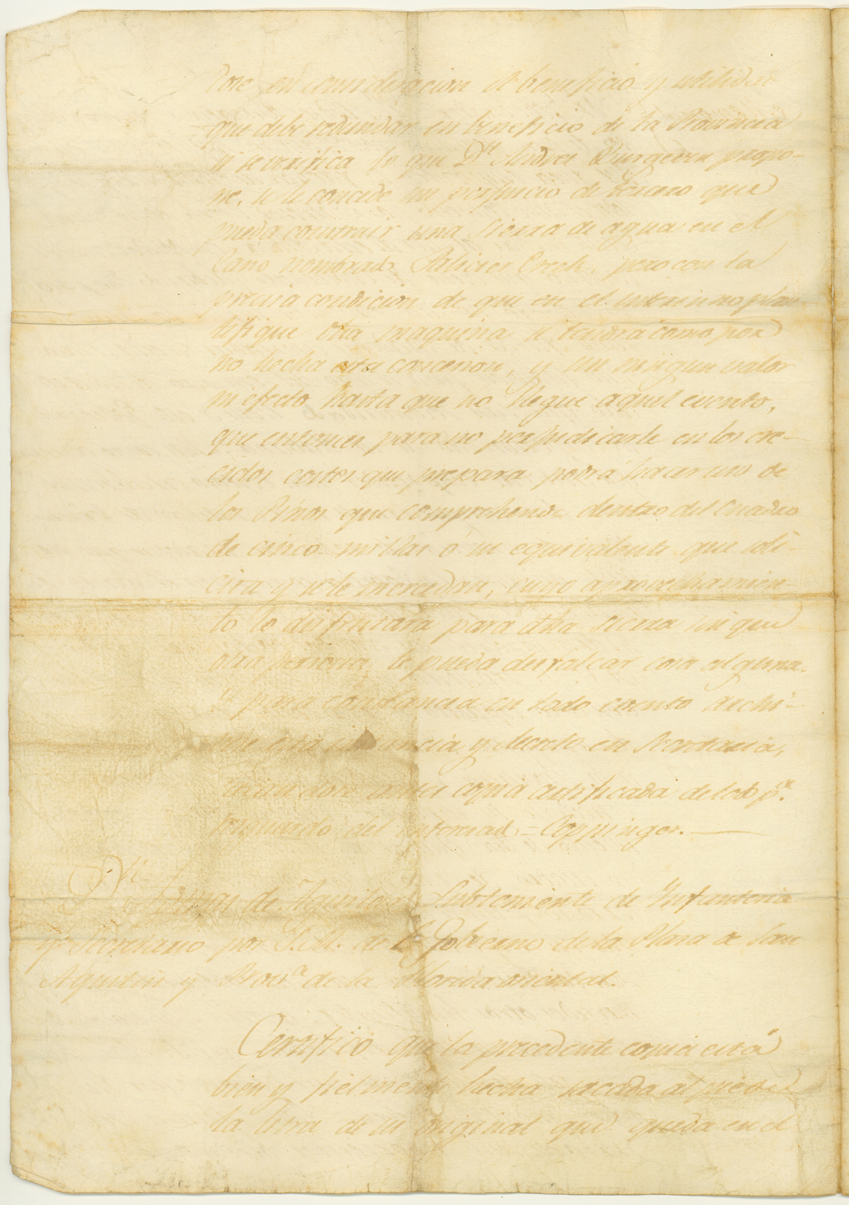 en consideracion al beneficio y utilidad
que debe redundar en beneficio de la Provincia
si se verifica lo que Dn Andres Burgevin propo-
ne, se le concede sin perjuicio de tercero que
pueda construir una sierra de agua en el
Caño nombrado Creek, pero con la
precisa condicion de que en el interin no plan-
tifique dha maquina se tendra como por
no hecha esta concesion, y sin ningun valor
ni efecto hasta que no llegue aquel evento,
que entonces para no perjudicarle en los cre-
cidos costos que prepara podrá hacer uso de
los Pinos que comprehende dentro del cuadro
de cinco millas ó su equivalente que soli-
cita y se le mercedea, cuyo aprovechamien-
to lo disfrutará para dha sierra sin que
otra persona le pueda desfalcar cosa alguna.
Y para constancia en todo evento archi-
vese esta instancia y decreto en Secretaria,
copia certificada de todo pa.
resguardo del interesado = Coppinger.
Dn
Tomas de Aguilar Subteniente de Infanteria
y Secretario por S.M. del Gobierno de la Plaza de San
Agustin y Prova de la Florida oriental.
Certifico que la precedente copia está
bien y fielmente hecha sacada al pie de
la letra de su original que queda en el